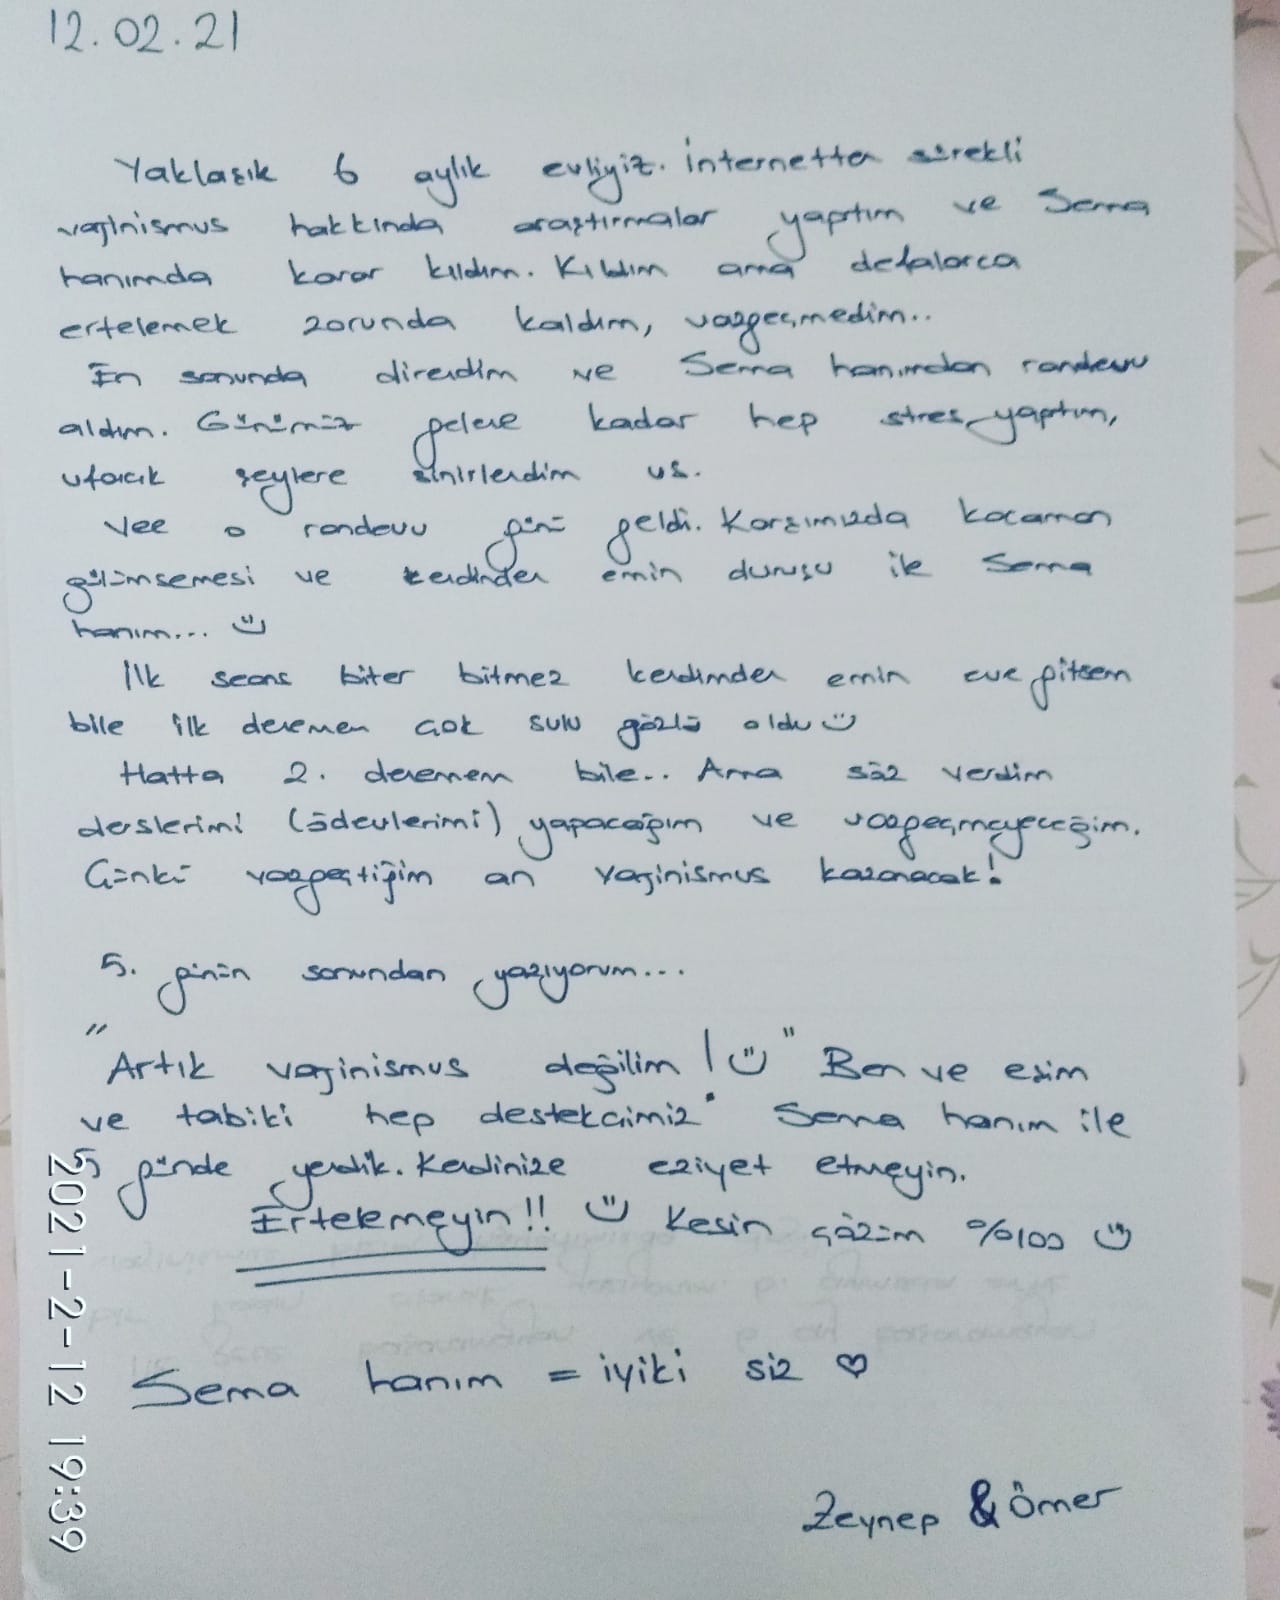 12.02.21
Yaklaşık 6 aylık evliyiz. İnternetten sürekli
vajinismus hakkında araştırmalar yaptım ve Sema
hanımda karar kıldım. Kıldım ama defalarca
ertelemek zorunda kaldım, vazgeçmedim..
En sonunda direndim ve Sema hanımdan randevu
aldım. Günümüz gelene kadar hep stres yaptım,
ufacık şeylere sinirlendim vs.
Vee o randevu günü geldi. Karşımızda kocaman
gülümsemesi ve kendinden emin duruşu ile Sema
hanım... :)
İlk seans biter bitmez kendimden emin eve gitsem
bile ilk denemem çok sulu gözlü oldu :)
Hatta 2. denemem bile.. Ama söz verdim
derslerimi (ödevlerimi) yapacağım ve vazgeçmeyeceğim.
Çünkü vazgeçtiğim an vajinismus kazanacak!
5. günün sonundan yazıyorum...
"Artık vajinismus değilim! :)" Ben ve eşim
ve tabiki hep destekçimiz Sema hanım ile
5 günde yendik. Kendinize eziyet etmeyin.
Ertelemeyin!! :) Kesin çözüm %100 :)
Sema hanım = iyiki siz ♡
Zeynep & Ömer
2021-2-12 19:39